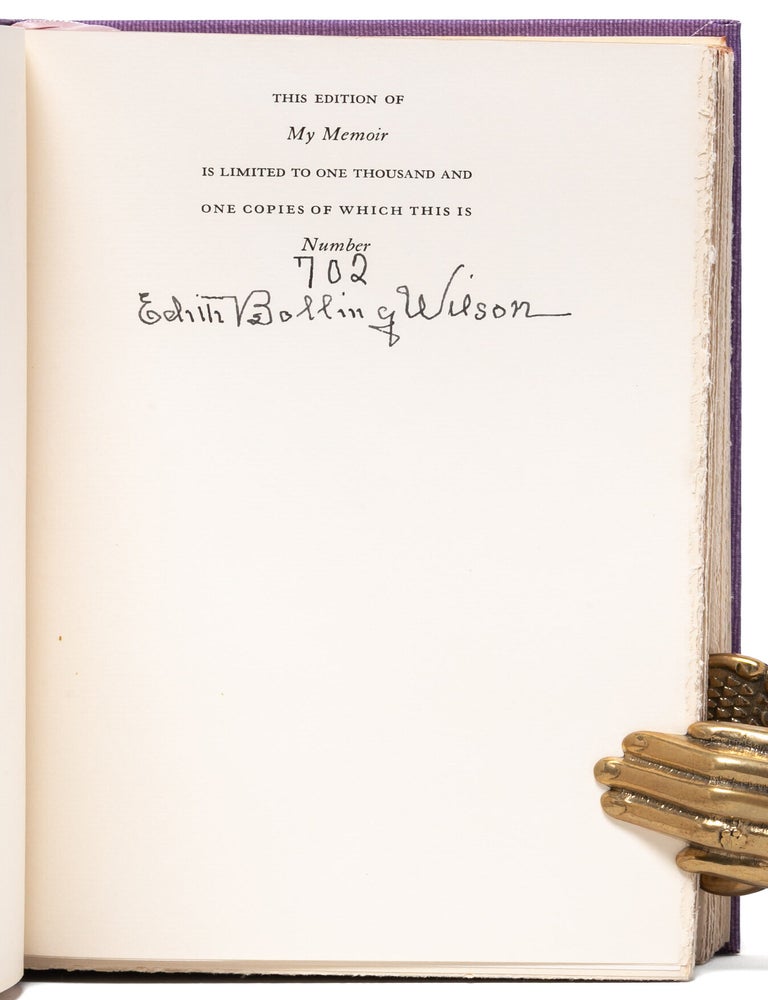 THIS EDITION OF
My Memoir
IS LIMITED TO ONE THOUSAND AND
ONE COPIES OF WHICH THIS IS
Number
702
Edith Bolling Wilson